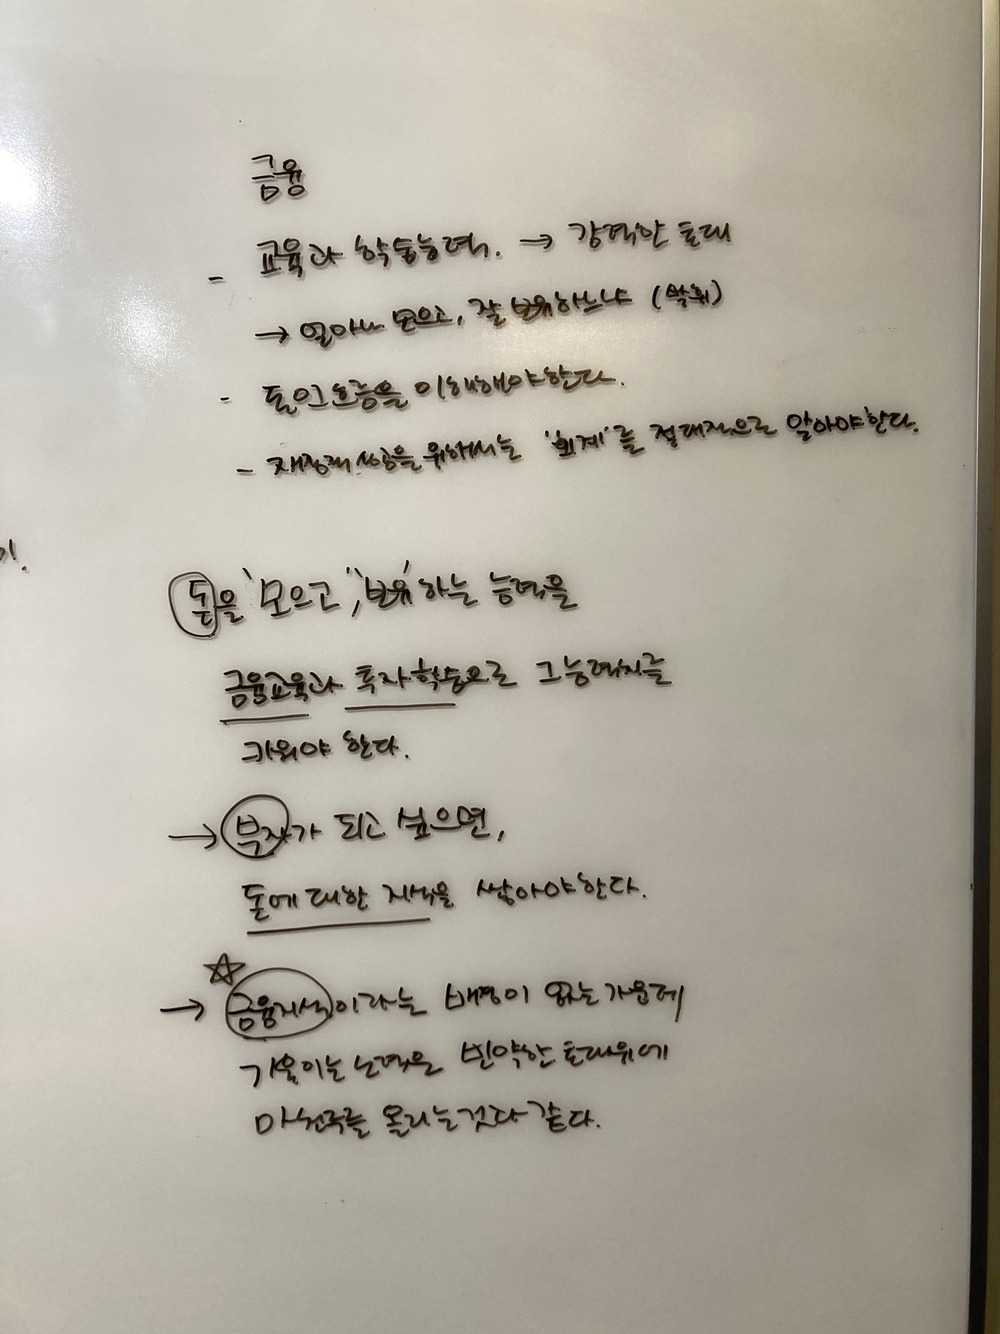 금융
- 교육과 학습능력. → 강력한 토대
→ 얼마나 모으고, 잘 보유하느냐
- 돈의 흐름을 이해해야한다.
- 재정적 성공을 위해서는 '회계'를 절대적으로 알아야한다.
기!
돈을 '모으고', '보유'하는 능력을
금융교육과 투자학습으로 그 능력치를
키워야 한다.
→ 부자가 되고 싶으면,
돈에 대한 지식을 쌓아야한다.
☆
→ 금융지식이라는 배경이 없는 가운데
기울이는 노력은 빈약한 토대위에
마천루를 올리는것과 같다.